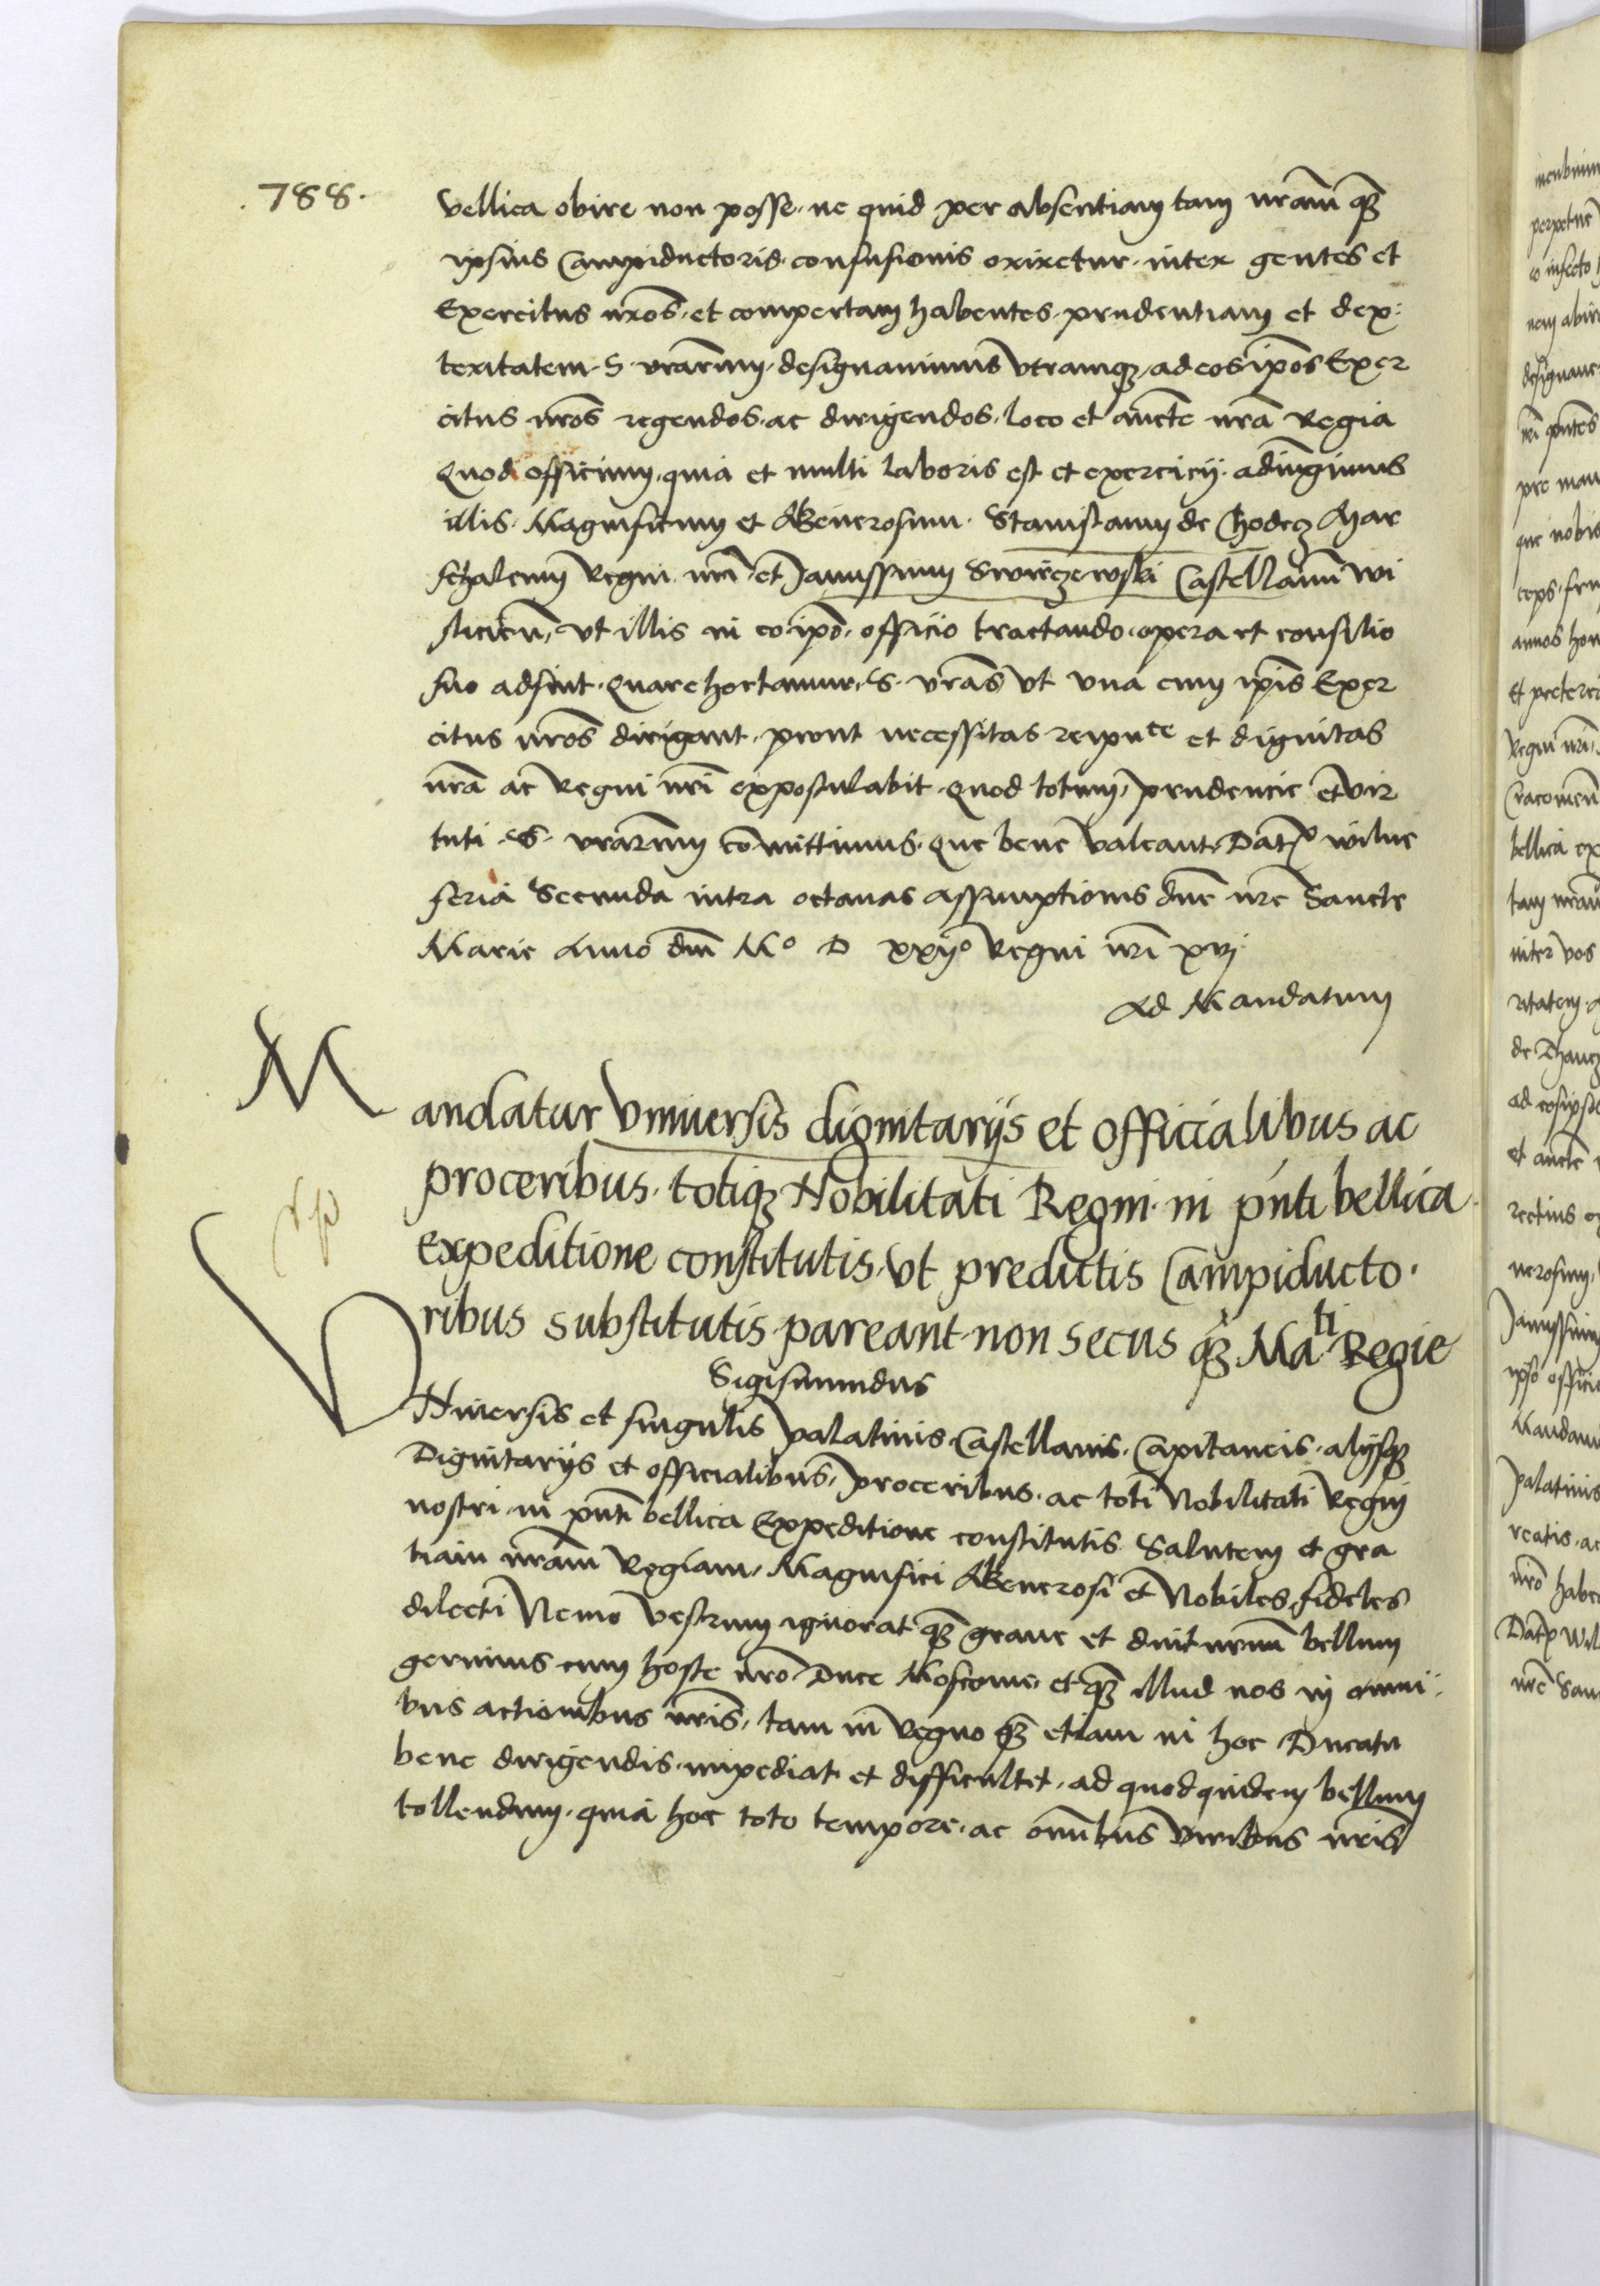 .788.
bellica obire non posse. ne quid per absentiam tam nrãm qꝫ
ipsius Campiductoris. confusionis oriretur. inter gentes et
Exercitus nrõs. et compertam habentes. prudentiam et dex:
teritatem. S. vrãrum. designauimus vtramqꝫ. ad eos ipõs Exer
citus nrõs regendos. ac dirigendos. loco et aucte nrã Regia
Quod officium. quia et multi laboris est et exercicij. adiungimus
illis. Magnificum et Generosum. Stanislaum de Chodecz Mar
schalcum Regni nrĩ et Janussium Swierczewski Castellanum wi
slicieñ. vt illis in eo ipõ. officio tractando. opera et consilio
suo adsint. Quare hortamur. S. vrãs vt vna cum ipĩs Exer
citus nrõs dirigant. prout necessitas reipuce et dignitas
nrã ac Regni nrĩ expostulabit. Quod totum. prudencie et vir
tuti. S. vrãrum comittimus. Que bene valeant. Datꝫ wilne
feria Secunda intra octauas assumptionis dnẽ nrẽ Sancte
Marie Anno dnĩ Mo D xxijo Regni nrĩ xvj
Ad Mandatum
Mandatur Vniuersis dignitarijs et officialibus ac
proceribus. totiqꝫ Nobilitati Regni. in pñti bellica.
Expeditione constitutis. vt predictis Campiducto.
ribus substitutis. pareant. non secus qꝫ Mati Regie
Sigismundus
VNiuersis et singulis Palatinis. Castellanis. Capitaneis. alijsqꝫ
Dignitarijs et officialibus. Proceribus. ac toti Nobilitati Regni
nostri. in pñti bellica Expeditione constitutis. Salutem et gra
tiam nrãm Regiam. Magnifici Generosi et Nobiles. fideles
dilecti Nemo vestrum ignorat qꝫ graue et diuturnum bellum
gerimus cum hoste nrõ Duce Moscouie. et qꝫ illud nos in omni:
bus actionibus nrĩs. tam in Regno qꝫ etiam in hoc Ducatu
bene dirigendis. impediat et difficultet. ad quod quidem bellum
tollendum. quia hoc toto tempore. ac omĩbus viribus nrĩs